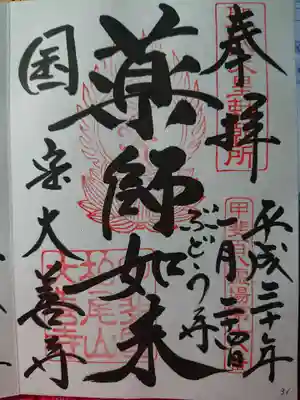 奉拝
平成三十年
一月二十四日
ぶどう寺
薬師如来
国宝大善寺
柏尾山
大善寺
31